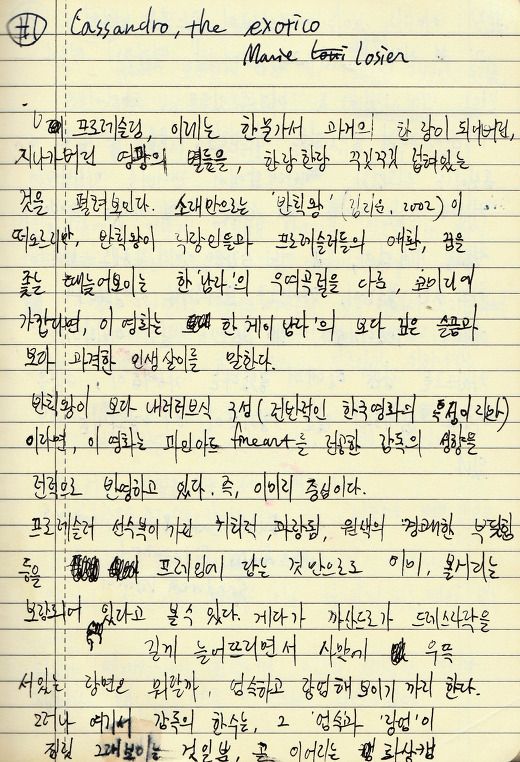 #1 Cassandro, the exotico
Marie Losier
프로레슬링, 이제는 한물가서 과거의 한 장이 되어버린,
지나가버린 영광의 별들을, 한장한장 꾸깃꾸깃 접혀있는
것을 펼쳐보인다. 소재만으로는 '반칙왕' (김지운, 2002) 이
떠오르지만, 반칙왕이 직장인들과 프로레슬러들의 애환, 꿈을
좇는 한 '남자'의 우여곡절을 다룬, 코미디에
가깝다면, 이 영화는 한 '게이 남자'의 보다 깊은 슬픔과
보다 과격한 인생살이를 말한다.
반칙왕이 보다 내러티브식 구성 (전반적인 한국영화의 특징이리만)
이라면, 이 영화는 파인아트 fineart를 전공한 감독의 성향을
전적으로 반영하고 있다. 즉, 이미지 중심이다.
프로레슬러 선수복이 가진 캐릭터, 파랑등, 원색의 경쾌한 부딪힘
등을 프레임에 담는 것만으로도 이미, 볼거리는
보장되어 있다고 볼 수 있다. 게다가 까산드로가 드레스자락을
길게 늘어뜨리면서 사막에 우뚝
서있는 장면은 뭐랄까, 엄숙하고 장엄해보이기까지 한다.
그러나 여기서 감독의 한수는, 그 '엄숙과 '장엄'이
그래보이는 것일뿐, 곧 이어지는